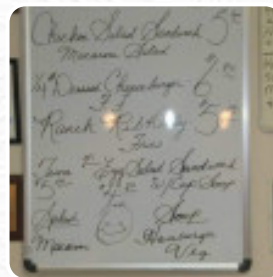 Chicken Salad Sandwich 5
Macaroni Salad
1/4 # Deluxe Cheeseburger 6
FF
Ranch
Fries 5
Tuna or Egg Salad Sandwich
$5 $4 w/ Cup Soup
Salad Soup
Macaroni Hamburger
Veg